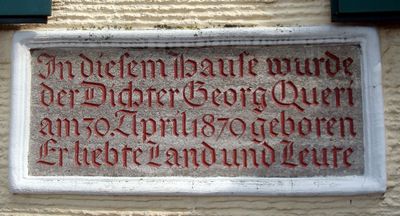 In diesem Hause wurde
der Dichter Georg Queri
am 30. April 1870 geboren
Er liebte Land und Leute